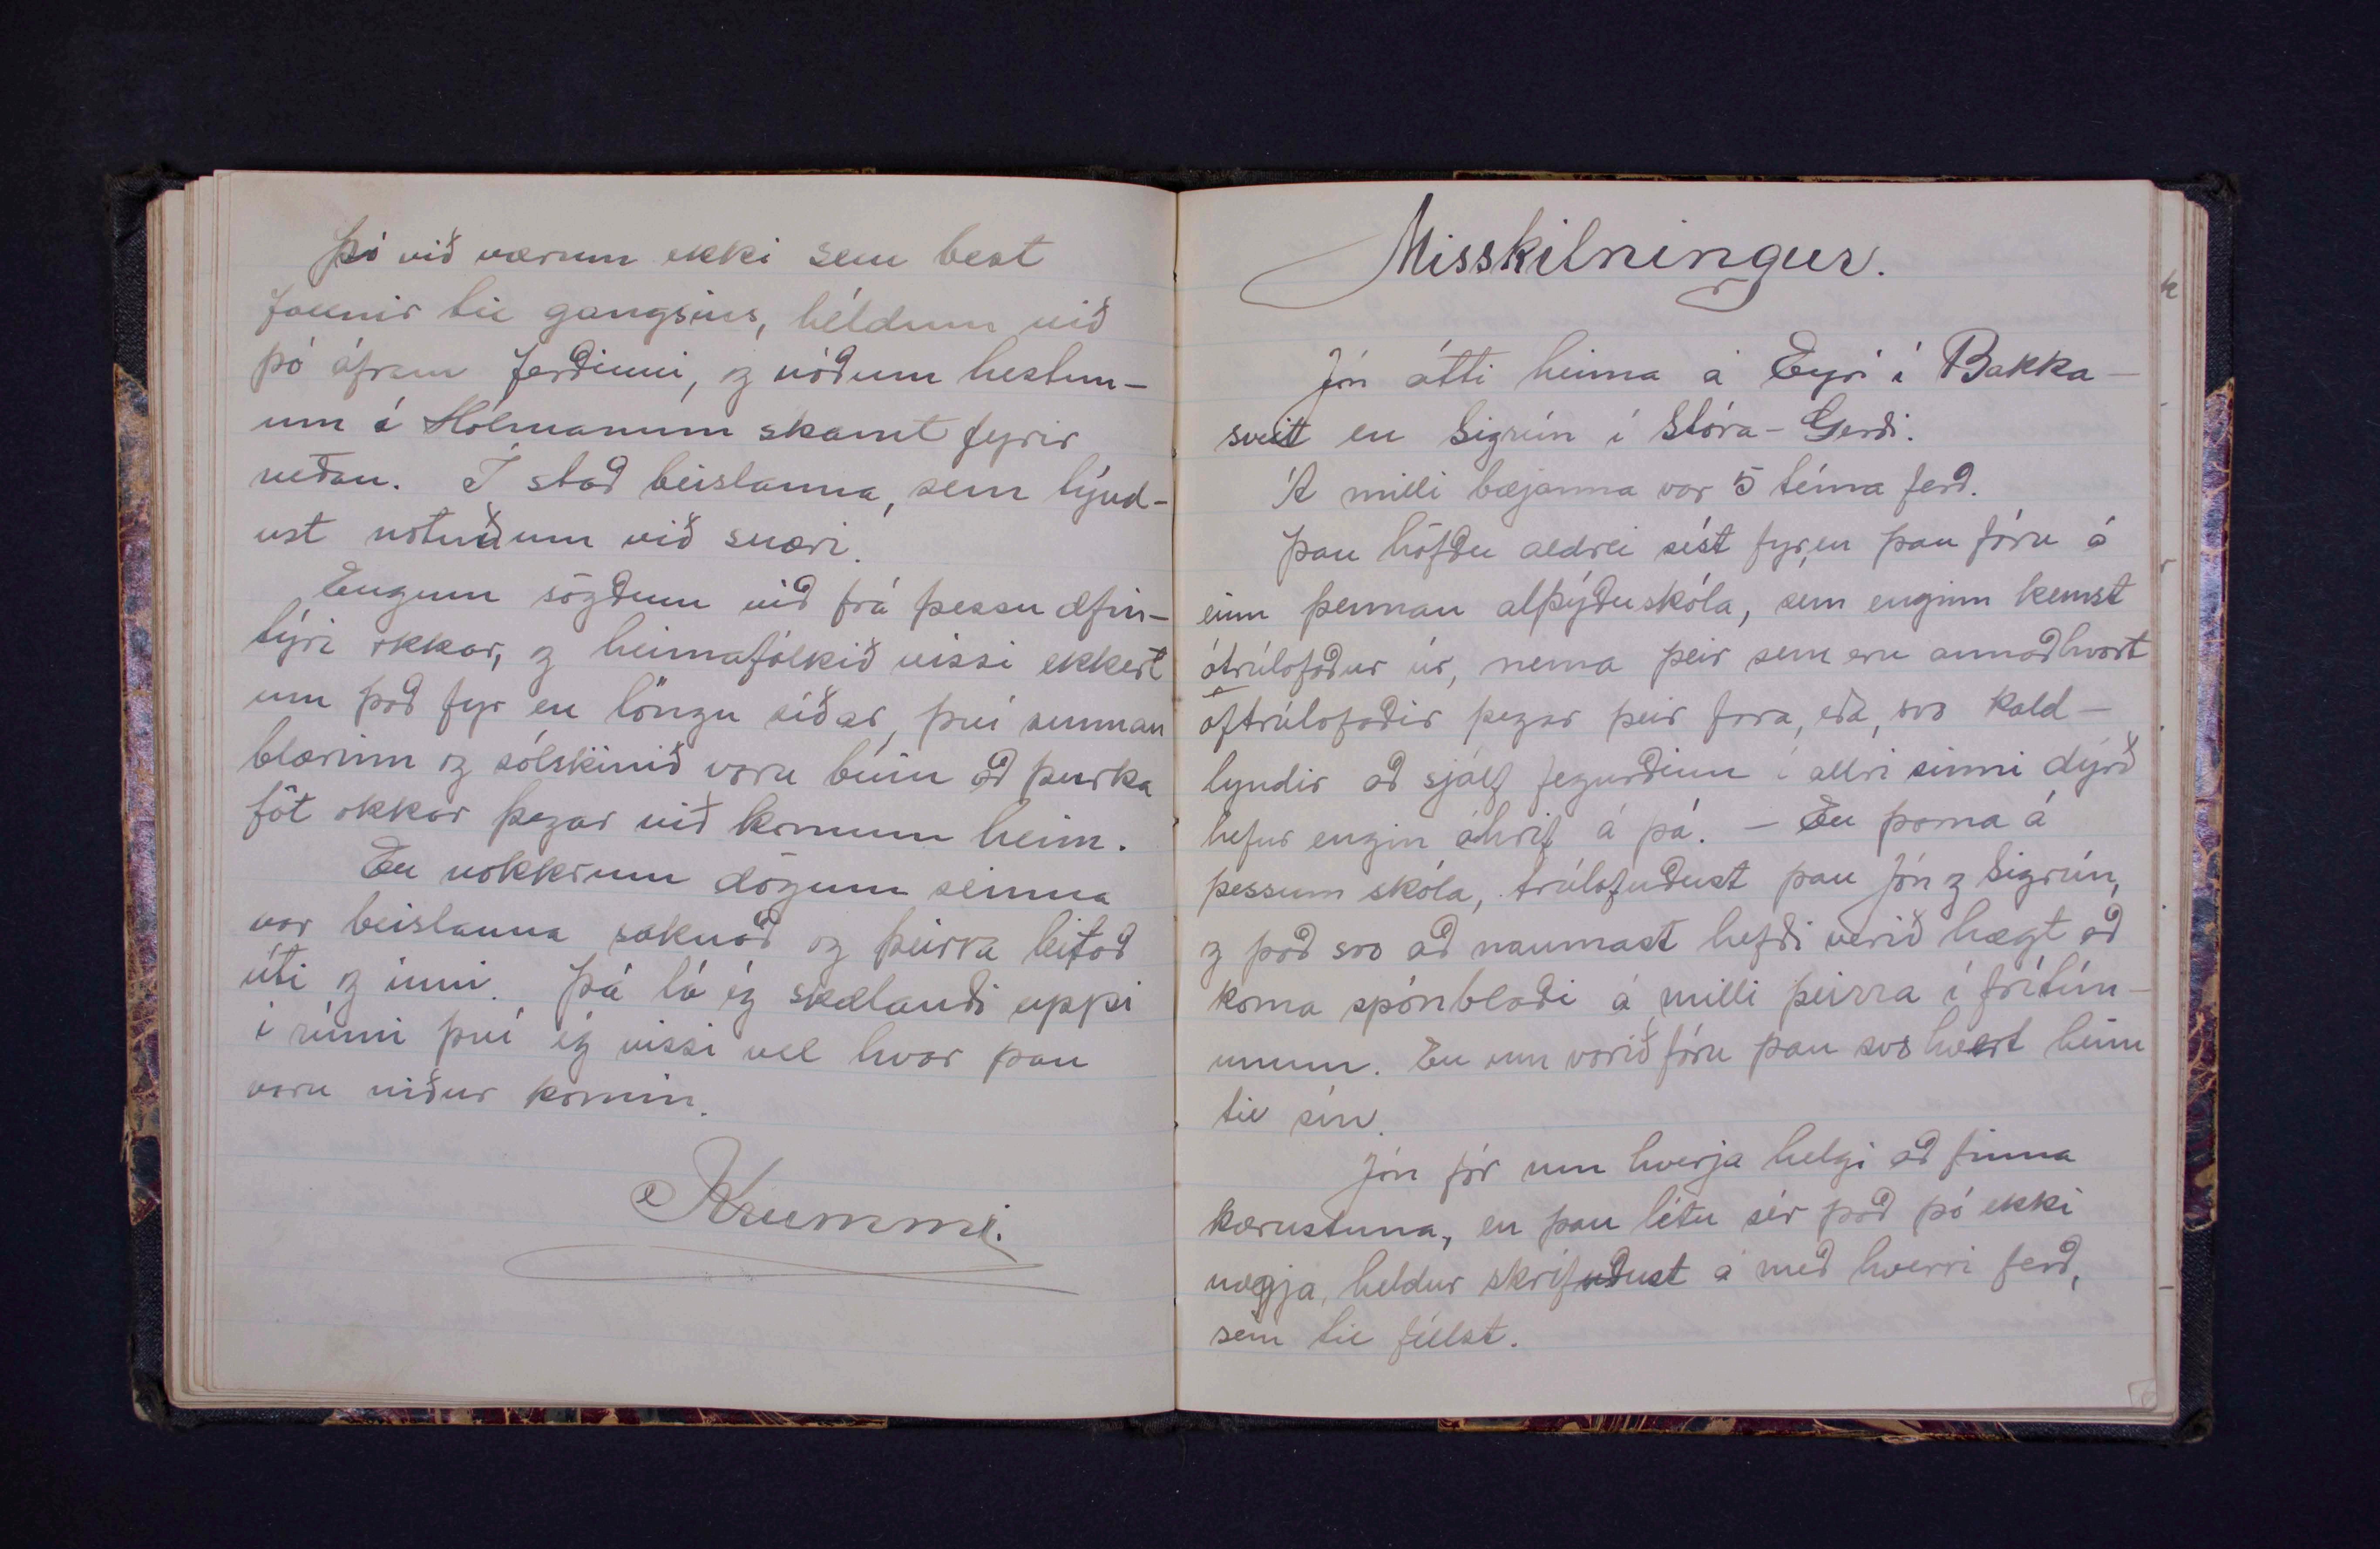 Þó við værum ekki sem best
fallnir til gangsins, héldum við
þó áfram ferðinni, og náðum hestun-
um í Hólmanum skamt fyrir
neðan. Í stað beislanna, sem týnd-
ust notuðum við snæri.
Engum sögðum við frá þessu æfin-
týri okkar, og heimafólkið vissi ekkert
um það fyr en löngu síðar, því sunnan
blærinn og sólskinið voru búin að þurka
föt okkar þegar við komum heim.
En nokkrum dögum seinna
var beislanna saknað og þeirra leitað
úti og inni. Þá lá ég skælandi uppi
í rúmi því ég vissi vel hvar þau
voru niður komin.
Krummi.
Misskilningur.
Jón átti heima á Eyri í Bakka-
sveit en Sigrún í Stóra-Gerði.
Á milli bæjanna var 5 tíma ferð.
Þau höfðu aldrei sést fyr, en þau fóru á
einn þennan alþýðuskóla, sem enginn kemst
ótrúlofaður úr, nema þeir sem eru annaðhvort
oftrúlofaðir þegar þeir fara, eða, svo kald-
lyndir að sjálf fegurðinn í allri sinni dýrð
hefur engin áhrif á þá. - En þarna á
þessum skóla, trúlofuðust þau Jón og Sigrún,
og það svo að naumast hefði verið hægt að
koma spónblaði á milli þeirra í frítím-
unum. En um vorið fóru þau svo hvert heim
til sín.
Jón fór um hverja helgi að finna
kærustuna, en þau létu sér það þó ekki
nægja, heldur skrifuðust á með hverri ferð,
sem til féllst.